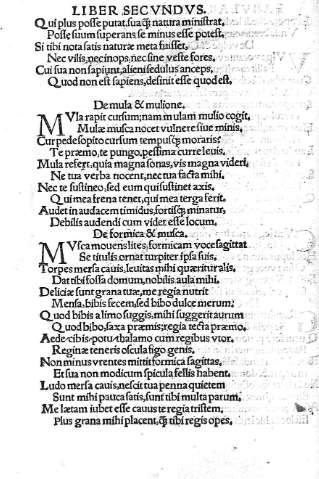 LIBER SECVNDVS.
Qui plus posse putat, suaq́ natura ministrat,
Posse suum superans se minus esse potest.
Si tibi nota satis naturæ meta fuisset,
Nec vilis, nec inops, nec sine veste fores.
Cui sua non sapiunt, alieni sedulus anceps,
Quod non est sapiens, desinit esse quod est.
De mula & mulione.
MVla rapit cursum; nam in ulam mulio cogit,
Mulæ musca nocet vulnere siue minis.
Cur pede sopito cursum tempusq́ moraris?
Te præmo, te pungo, pessima curre leuis.
Mula refert, quia magna sonas, vis magna videri,
Ne tua verba nocent, nec tua facta mihi.
Nec te sustineo, sed eum qui sustinet axis,
Qui mea frena tenet, qui mea terga ferit.
Audet in audacem timidus, fortisq́ minatur,
Debilis audendi cum videt esse locum.
De formica & musca.
MVsca mouens lites, formicam voce sagittat
Se titulis ornat turpiter ipsa suis.
Torpes mersa cauis, leuitas mihi quæritur alis.
Dat tibi fossa domum, nobilis aula mihi.
Deliciæ sunt grana tuæ, me regia nutrit
Mensa, bibis fecem, sed bibo dulce merum:
Quod bibis a limo suggis, mihi suggerit aurum
Quod bibo, saxa præmis; regia tecta præmo.
Aede-cibis-potu-thalamo cum regibus vtor.
Reginæ teneris oscula figo genis.
Non minus vrentes mittit formica sagittas,
Et sua non modicum spicula fellis habent.
Ludo mersa cauis, nescit tua penna quietem
Sunt mihi pauca satis, sunt tibi multa parum.
Me lætam iubet esse cauus te regia tristem.
Plus grana mihi placent, q̃ tibi regis opes.